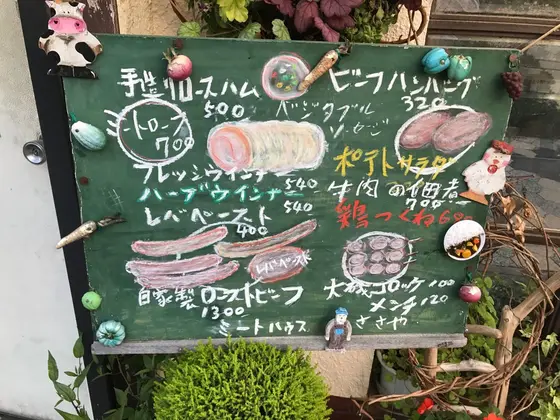 手造りロースハム
500
ビーフハンバーグ
320
ミートローフ
700
ベジタブル
ソーセージ
ポテトサラダ
フレッシュウインナー
540
ハーブウインナー
540
牛肉の佃煮
700
レバーペースト
400
鶏つくね600
レバーペースト
自家製ローストビーフ
1300
大磯コロッケ100
メンチ120
ミートハウス ささや